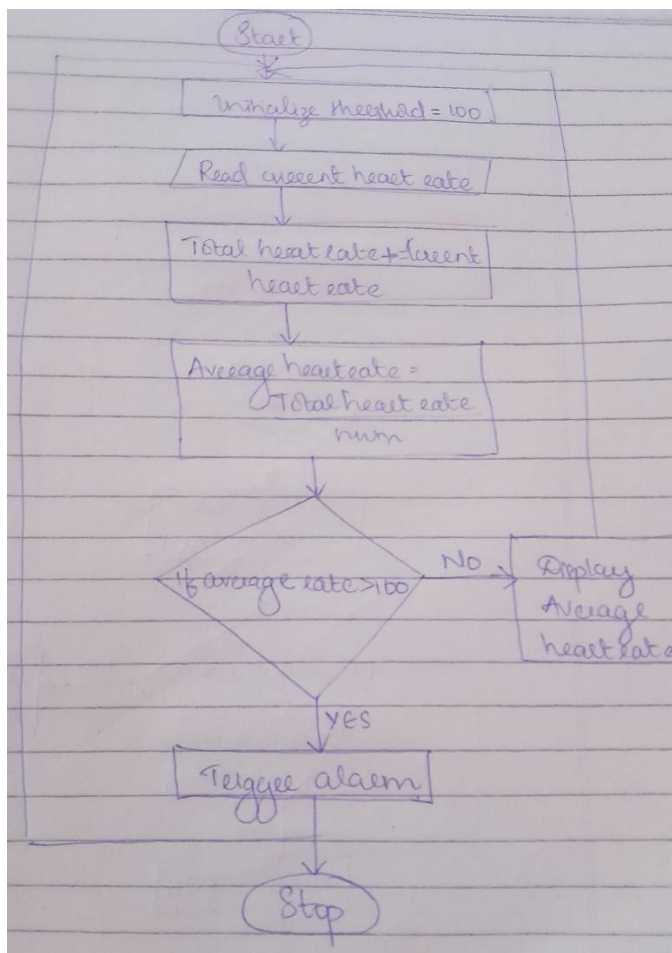 Start
Initialize threshold = 100
Read current heart rate
Total heart rate + = current
heart rate
Average heart rate =
Total heart rate
num
If average rate > 100
NO
Display
Average
heart rate
YES
Trigger alarm
Stop